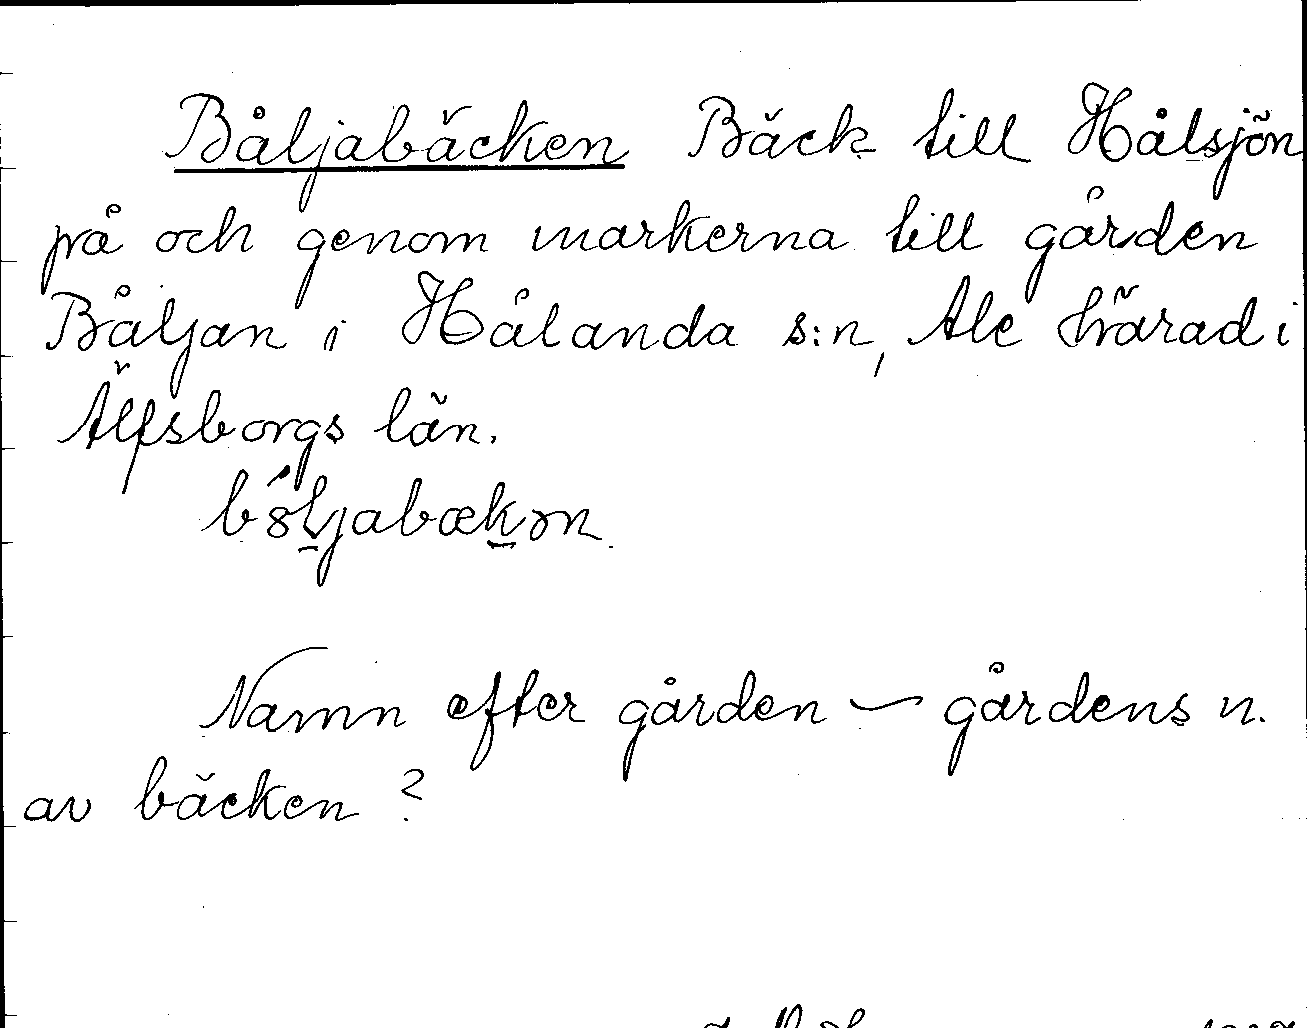 Båljabäcken Bäck till Hålsjön
på och genom markerna till gården
Båljan i Hålanda s:n, Ale härad i
Älfsborgs län.
Namn efter gården — gårdens n.
av bäcken?